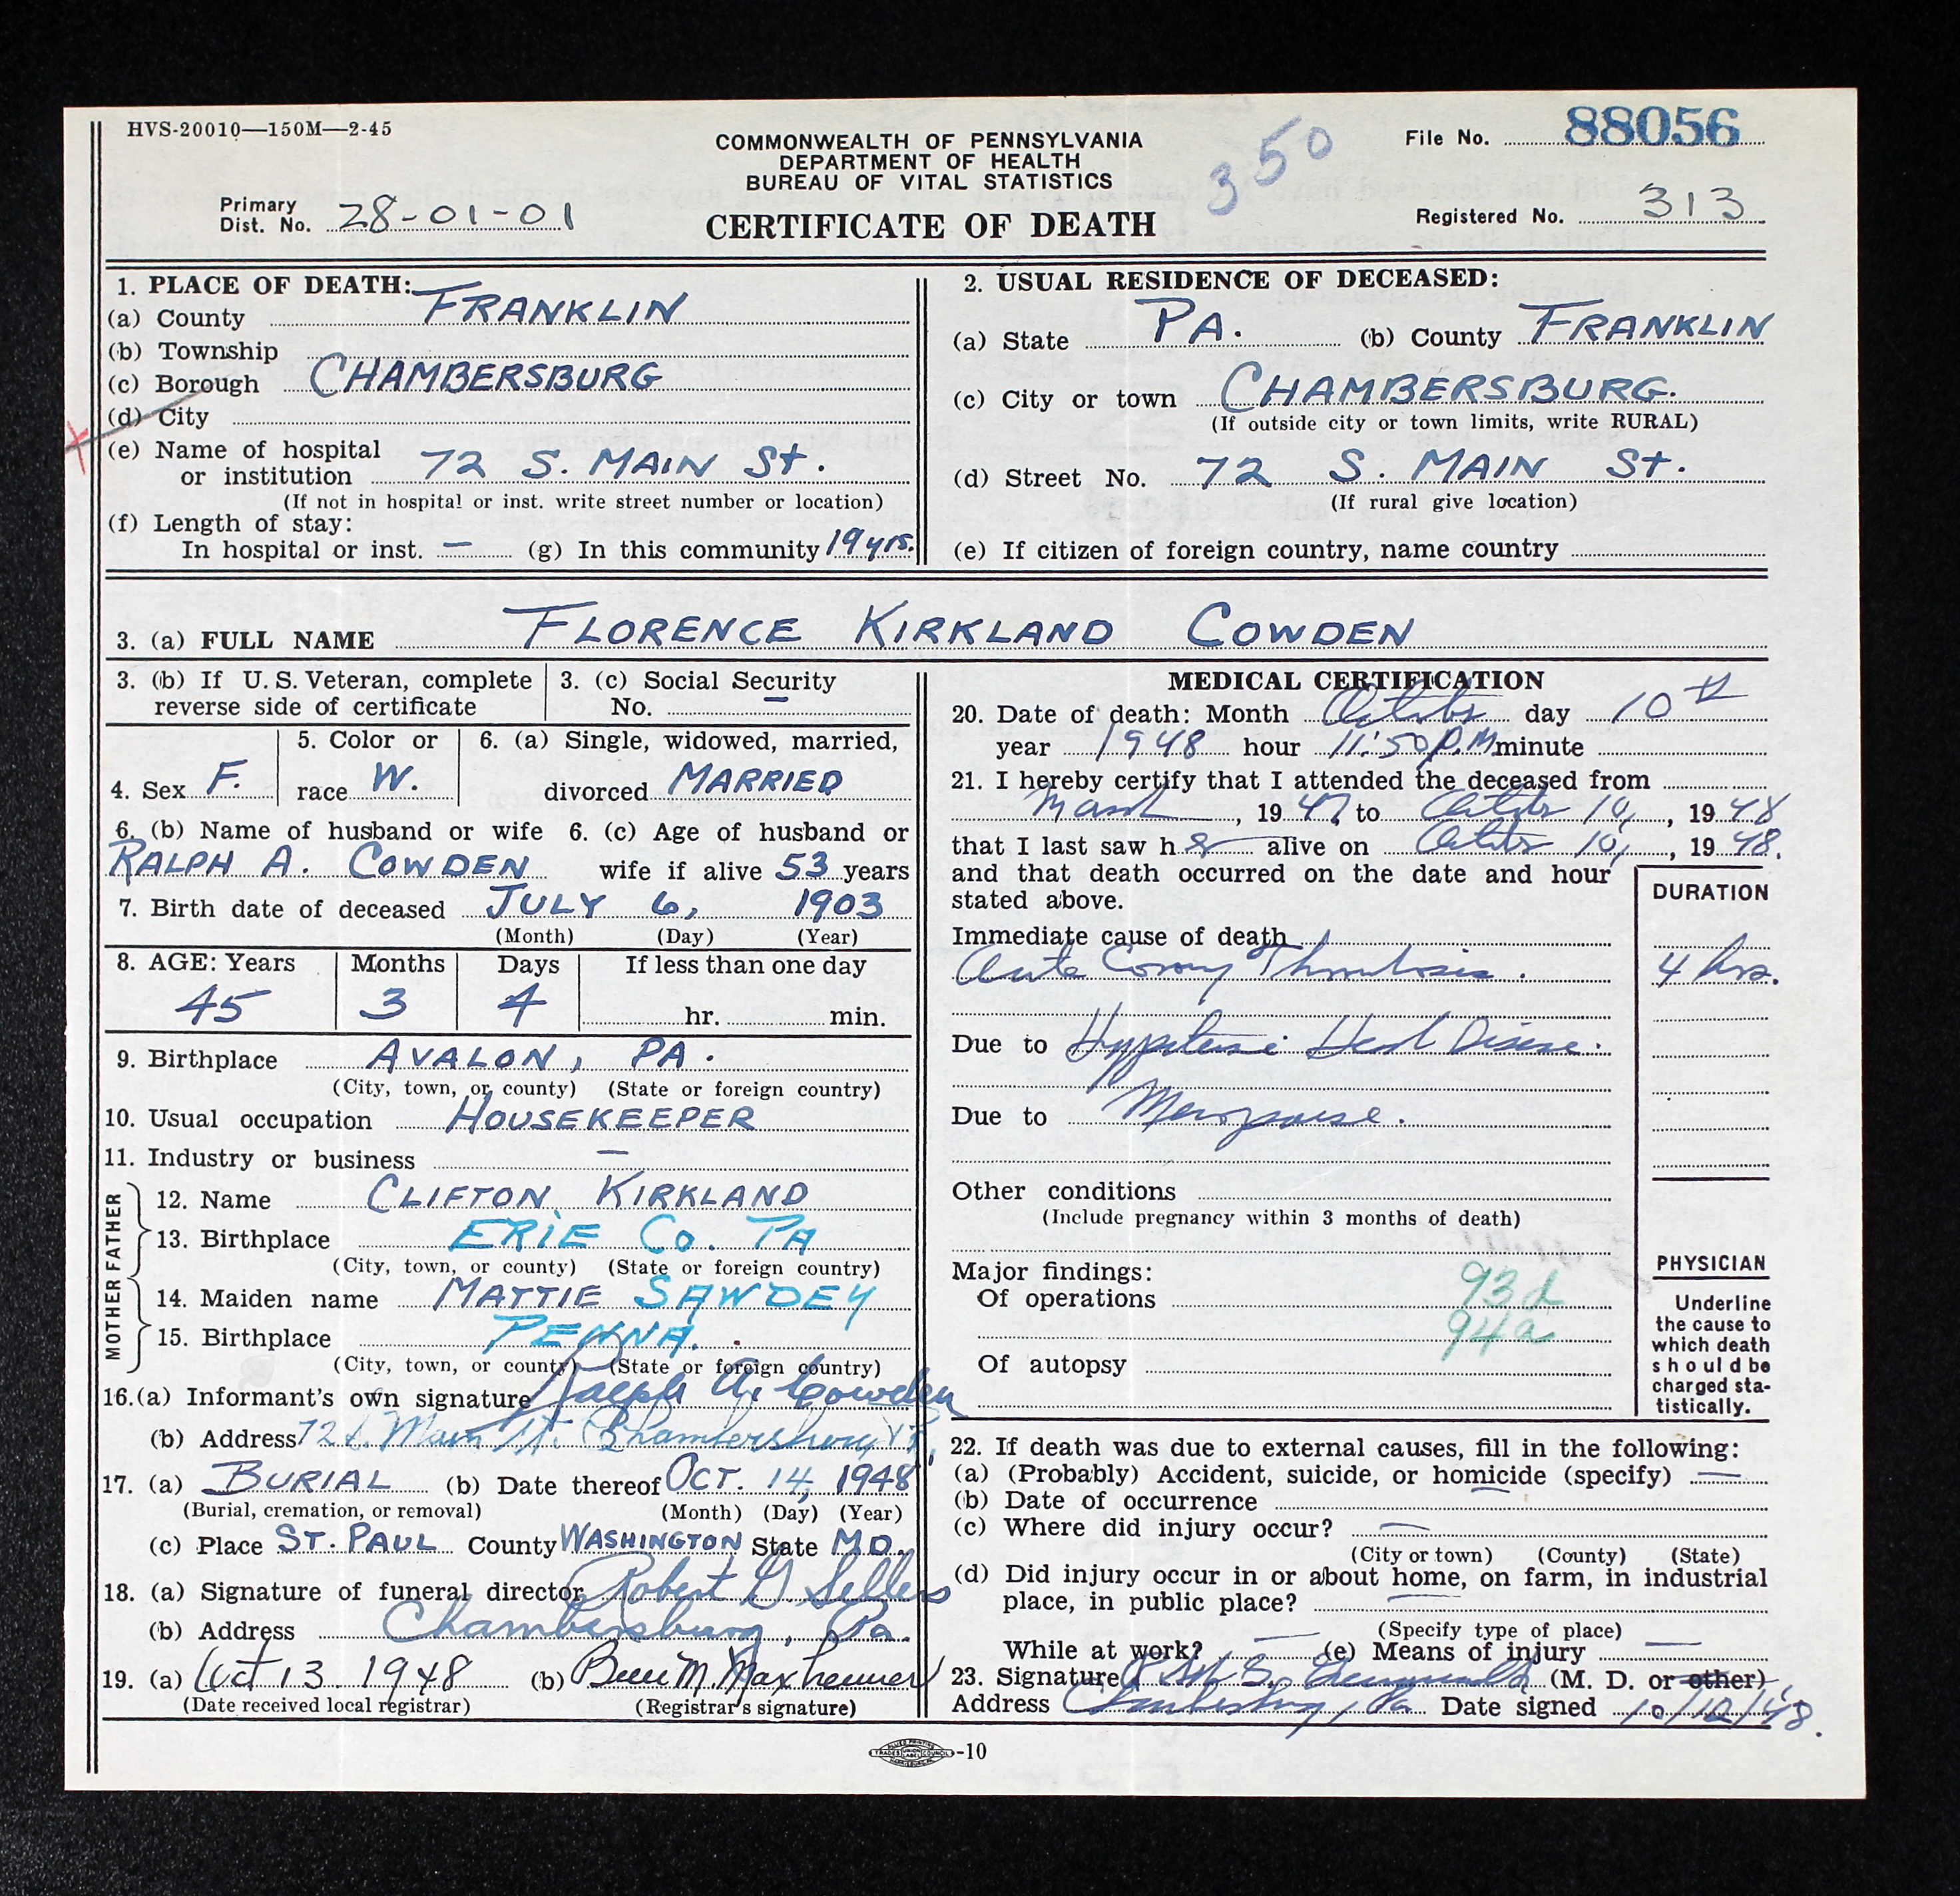 HVS-20010—150M—2-45
COMMONWEALTH OF PENNSYLVANIA
DEPARTMENT OF HEALTH
BUREAU OF VITAL STATISTICS
CERTIFICATE OF DEATH
350
File No. 88056
Primary
Dist. No. 28-01-01
Registered No. 313
1. PLACE OF DEATH:
(a) County FRANKLIN
(b) Township
(c) Borough CHAMBERSBURG
(d) City
(e) Name of hospital
or institution 72 S. MAIN St.
(If not in hospital or inst. write street number or location)
(f) Length of stay:
In hospital or inst. — (g) In this community 19 yrs.
2. USUAL RESIDENCE OF DECEASED:
(a) State PA. (b) County FRANKLIN
(c) City or town CHAMBERSBURG.
(If outside city or town limits, write RURAL)
(d) Street No. 72 S. MAIN St.
(If rural give location)
(e) If citizen of foreign country, name country
3. (a) FULL NAME FLORENCE KIRKLAND COWDEN
3. (b) If U. S. Veteran, complete
reverse side of certificate
3. (c) Social Security
No. —
4. Sex F.
5. Color or
race W.
6. (a) Single, widowed, married,
divorced MARRIED
6. (b) Name of husband or wife 6. (c) Age of husband or
RALPH A. COWDEN wife if alive 53 years
7. Birth date of deceased JULY 6, 1903
(Month) (Day) (Year)
8. AGE: Years Months Days If less than one day
45 3 4 hr. min.
9. Birthplace AVALON, PA.
(City, town, or county) (State or foreign country)
10. Usual occupation HOUSEKEEPER
11. Industry or business —
FATHER
12. Name CLIFTON KIRKLAND
13. Birthplace ERIE Co. PA
(City, town, or county) (State or foreign country)
MOTHER
14. Maiden name MATTIE SAWDEY
15. Birthplace PENNA.
(City, town, or county) (State or foreign country)
16.(a) Informant's own signature Ralph A. Cowden
(b) Address 72 S. Main St. Chambersburg Pa.
17. (a) BURIAL (b) Date thereof OCT. 14, 1948
(Burial, cremation, or removal) (Month) (Day) (Year)
(c) Place ST. PAUL County WASHINGTON State MD.
18. (a) Signature of funeral director Robert G. Sellers
(b) Address Chambersburg, Pa.
19. (a) Oct 13 1948 (b) M. Maxheimer
(Date received local registrar) (Registrar's signature)
MEDICAL CERTIFICATION
20. Date of death: Month October day 10th
year 1948 hour 11:50 P.M minute
21. I hereby certify that I attended the deceased from
March, 1947, to October 10, , 1948
that I last saw her alive on October 10, , 1948.
and that death occurred on the date and hour
stated above.
DURATION
Immediate cause of death
Acute Coronary Thrombosis. 4 hrs.
Due to Hypertensive Heart Disease.
Due to Menopause.
Other conditions
(Include pregnancy within 3 months of death)
Major findings:
Of operations 93d
94a
Of autopsy
PHYSICIAN
Underline
the cause to
which death
should be
charged sta-
tistically.
22. If death was due to external causes, fill in the following:
(a) (Probably) Accident, suicide, or homicide (specify) —
(b) Date of occurrence —
(c) Where did injury occur? —
(City or town) (County) (State)
(d) Did injury occur in or about home, on farm, in industrial
place, in public place? —
(Specify type of place)
While at work? — (e) Means of injury —
23. Signature (M. D. or other)
Address Chambersburg, Pa Date signed 10/12/48.
ALLIED PRINTING
TRADES UNION LABEL COUNCIL
-10